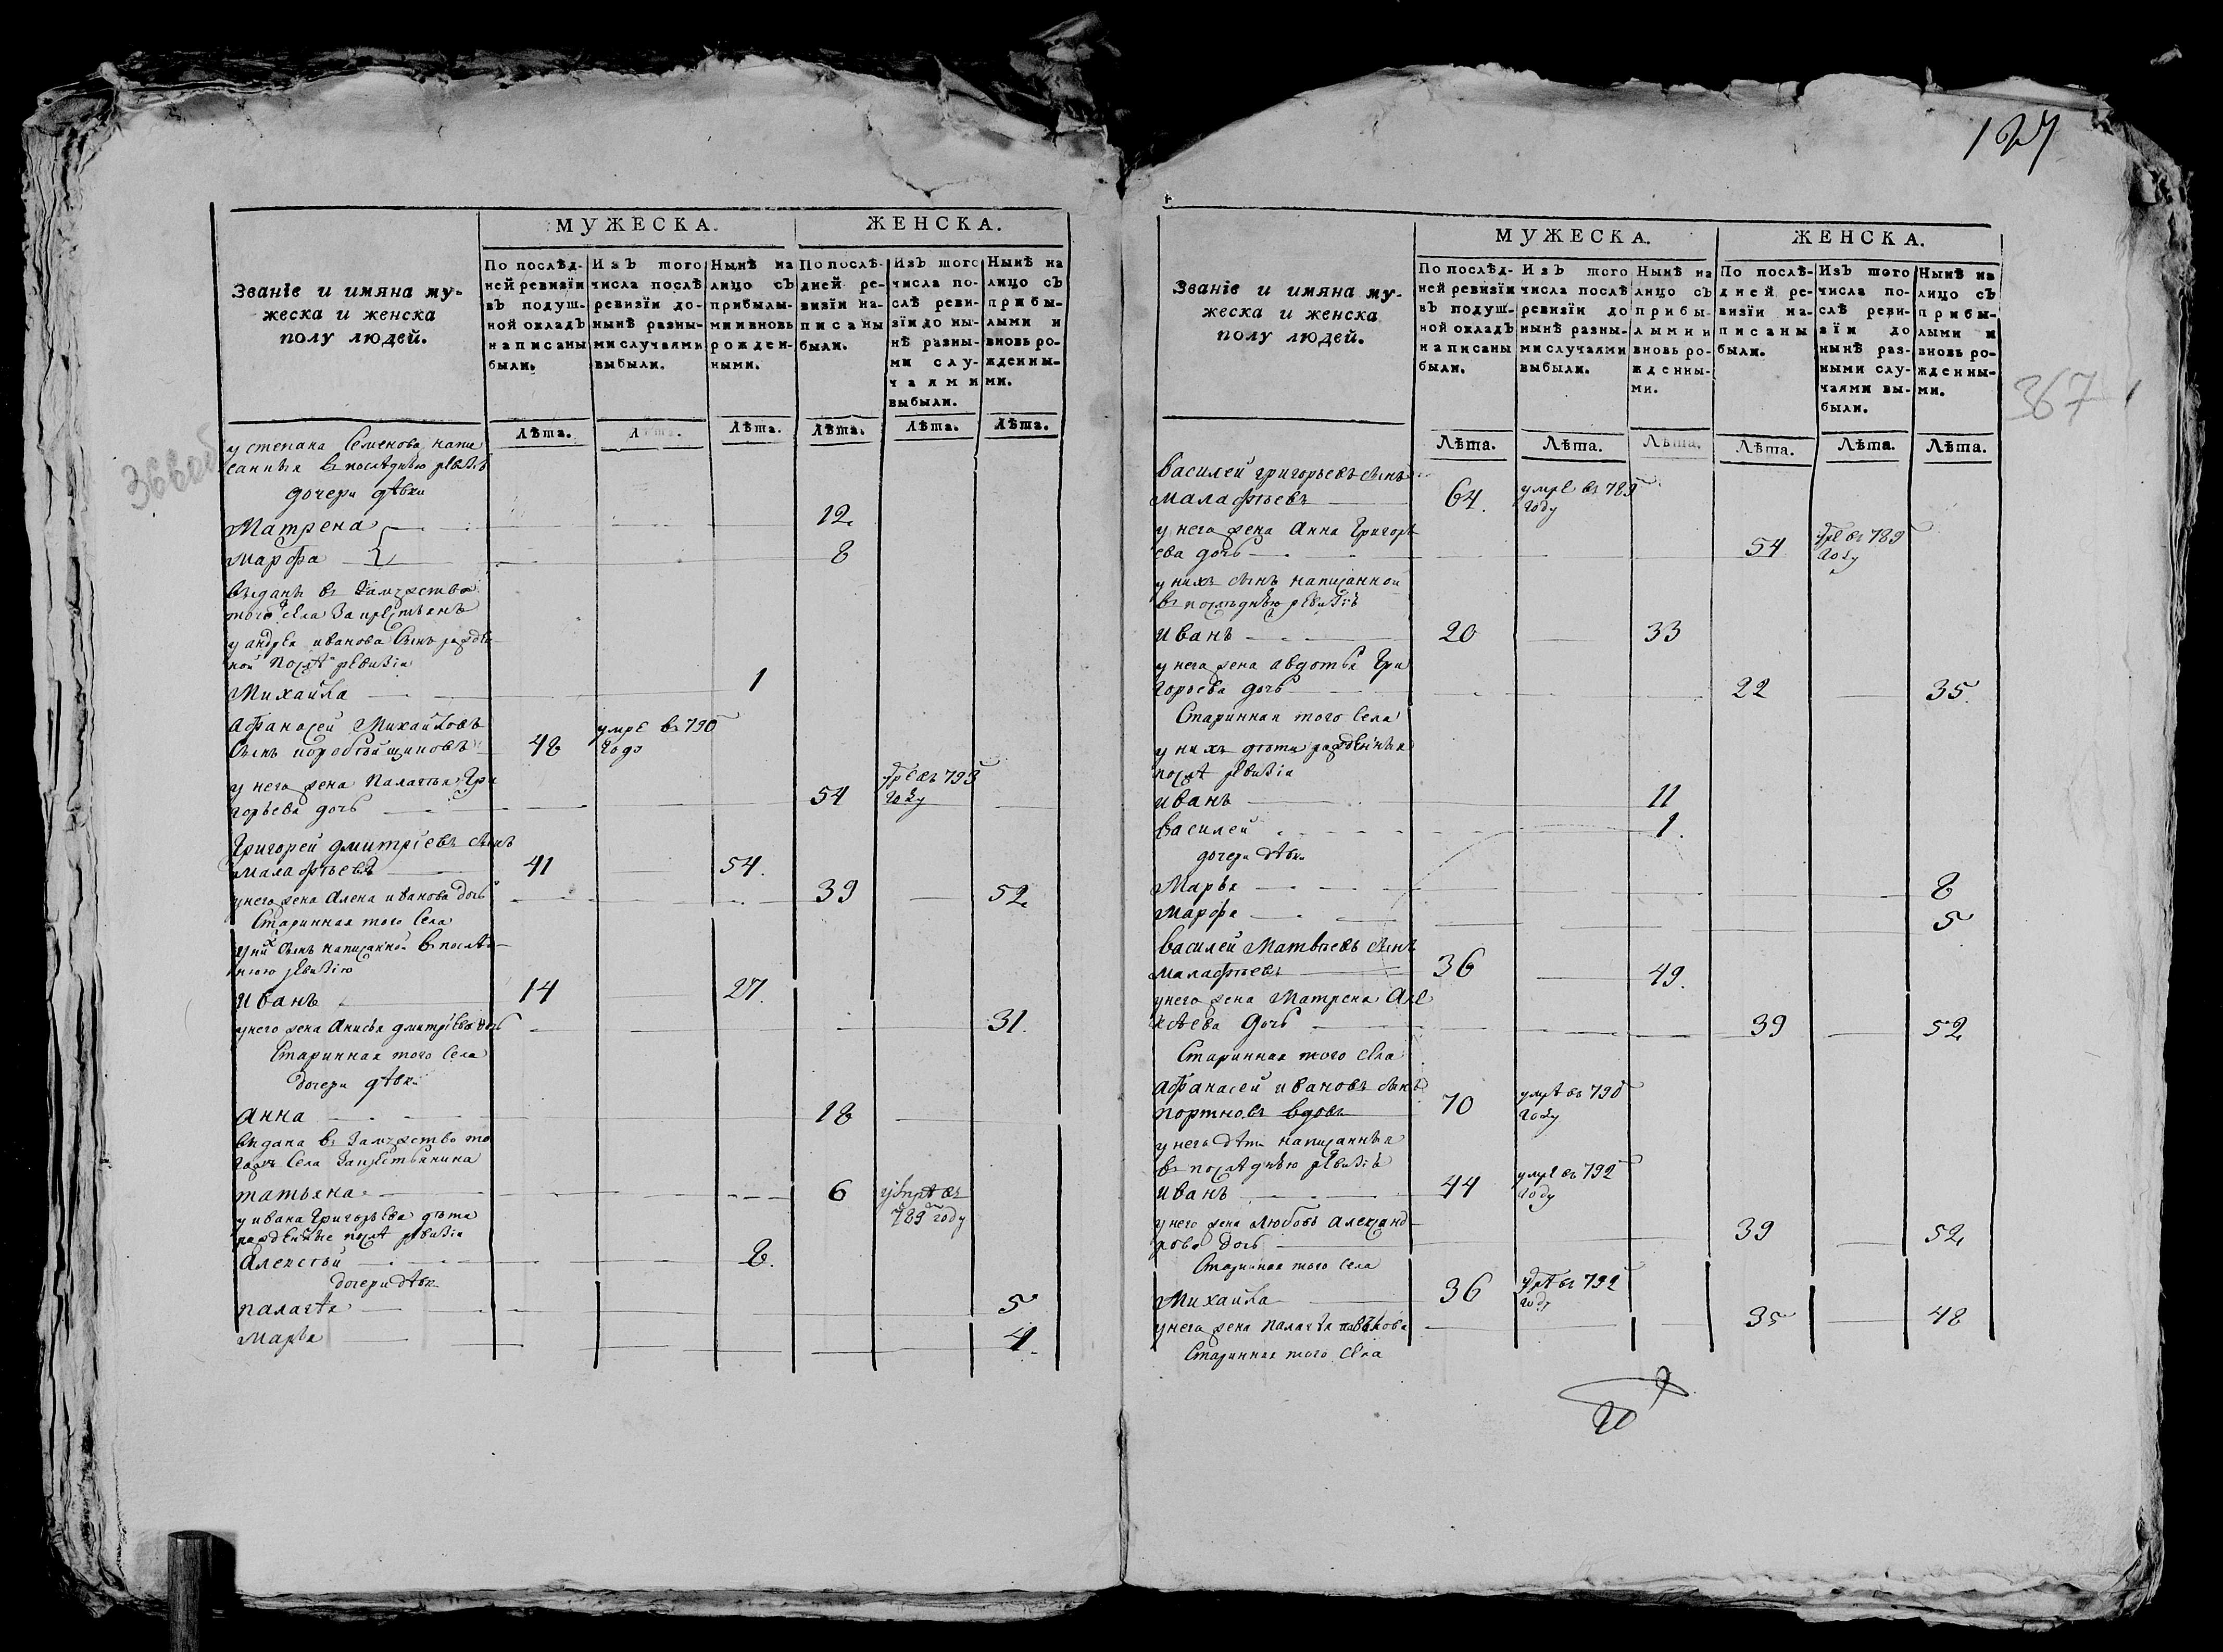 МУЖЕСКА.
ЖЕНСКА.
Званіе и имяна му-
жеска и женска
полу людей.
По послѣд-
ней ревизіи
въ подуш-
ной окладъ
написаны
были.
Изъ того
числа послѣ
ревизіи до-
нынѣ разны-
ми случаями
выбыли.
Нынѣ на
лицо съ
прибылы-
ми и вновь
рожден-
ными.
По послѣ-
дней ре-
визіи на-
писаны
были.
Изъ того
числа по-
слѣ реви-
зіи до ны-
нѣ разны-
ми слу-
чаями
выбыли.
Нынѣ на
лицо съ
прибы-
лыми и
вновь ро-
жденны-
ми.
Лѣта. Лѣта. Лѣта. Лѣта. Лѣта. Лѣта.
у степана Семенова напи
санныя в последнею ревизїю
дочери дѣвки
Матрена 12
Марфа 8
выданы в замужство
того села за крестьянъ
у андрея иванова сынъ рожден
ной послѣ ревизіи
Михайла 1
Афанасей Михайловъ
сынъ 48 умре в 790 году
у него жена Палагея Гри
горьева дочь 54 умре въ 793 году
Григорей дмитріевъ сынъ
Малафѣевъ 41 54
у него жена Алена иванова дочь 39 52
Старинная того Села
у них сынъ написанной в послѣд
нюю ревизію
Иванъ 14 27
у него жена Анисья дмитріева дочь 31
Старинная того Села
дочери дѣвки
Анна 18
выдана в замужство то
гожъ Села за крестьянина
татьяна 6 умре въ 789 году
у ивана Григорьева дѣти
рожденные послѣ ревизіи
Алексѣй 8
дочери дѣвки
палагѣя 5
Марья 4
127
367
МУЖЕСКА.
ЖЕНСКА.
Званіе и имяна му-
жеска и женска
полу людей.
По послѣд-
ней ревизіи
въ подуш-
ной окладъ
написаны
были.
Изъ того
числа послѣ
ревизіи до
нынѣ разны-
ми случаями
выбыли.
Нынѣ на
лицо съ
прибы-
лыми и
вновь ро-
жденны-
ми.
По послѣ-
дней ре-
визіи на-
писаны
были.
Изъ того
числа по-
слѣ реви-
зіи до
нынѣ раз-
ными слу-
чаями вы-
были.
Нынѣ на
лицо съ
прибы-
лыми и
вновь ро-
жденны-
ми.
Лѣта. Лѣта. Лѣта. Лѣта. Лѣта. Лѣта.
Василей григорьевъ сынъ
Малафѣевъ 64 умре въ 789 году
у него жена Анна Григорь
ева дочь 54 умре въ 789 году
у нихъ сынъ написанной
в последнею ревизїю
Иванъ 20 33
у него жена авдотья Гри
горьева дочь 22 35
Старинная того Села
у нихъ дѣти рожденныя
послѣ ревизіи
Иванъ 11
Василей 1
дочери дѣвки
Марья 8
Марфа 5
Василей Матвѣевъ сынъ
Малафѣевъ 36 49
у него жена Матрена Але
ксѣева дочь 39 52
Старинная того села
Афанасей ивановъ сынъ
портновъ вдовъ 70 умре въ 790 году
у него дѣти написанныя
в последнею ревизїю
Иванъ 44 умре въ 792 году
у него жена Любовь Александ
рова дочь 39 52
Старинная того Села
Михайла 36 умре въ 792 году
у него жена палагѣя 35 48
Старинная того Села